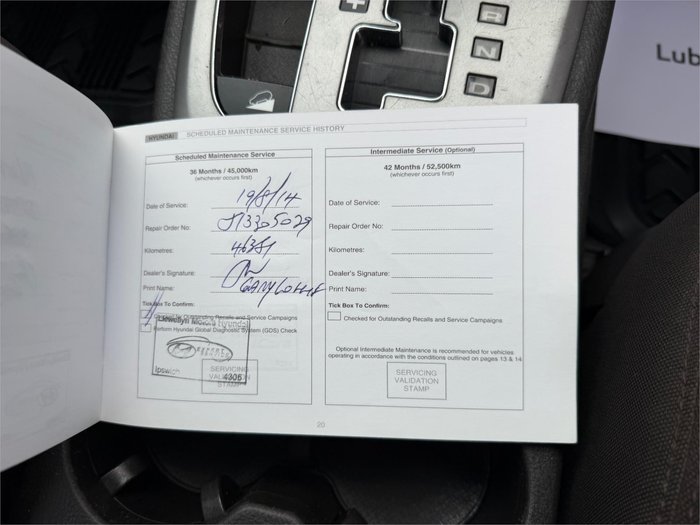 R
N
D
Lub
HYUNDAI SCHEDULED MAINTENANCE SERVICE HISTORY
Scheduled Maintenance Service
36 Months / 45,000km
(whichever occurs first)
Date of Service: 19/8/14
Repair Order No:
Kilometres: 46381
Dealer's Signature:
Print Name: GARY
Tick Box To Confirm:
Checked for Outstanding Recalls and Service Campaigns
Perform Hyundai Global Diagnostic System (GDS) Check
Llewellyn Motors Hyundai
Ipswich 4305
SERVICING
VALIDATION
STAMP
Intermediate Service (Optional)
42 Months / 52,500km
(whichever occurs first)
Date of Service:
Repair Order No:
Kilometres:
Dealer's Signature:
Print Name:
Tick Box To Confirm:
Checked for Outstanding Recalls and Service Campaigns
Optional Intermediate Maintenance is recommended for vehicles
operating in accordance with the conditions outlined on pages 13 & 14
SERVICING
VALIDATION
STAMP
20